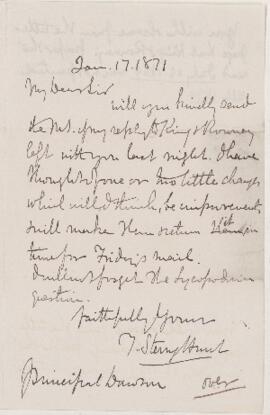 Jan. 17. 1871
My Dear Sir
will you kindly send
the M.S. of my reply to King & Rowney
left with you last night. I have
thought of one or two little changes
which will I think, be improvements,
will make them & return it in
time for Friday's mail.
I will not forget the Lycopodium
question.
Faithfully Yours
T. Sterry Hunt
Principal Dawson
over